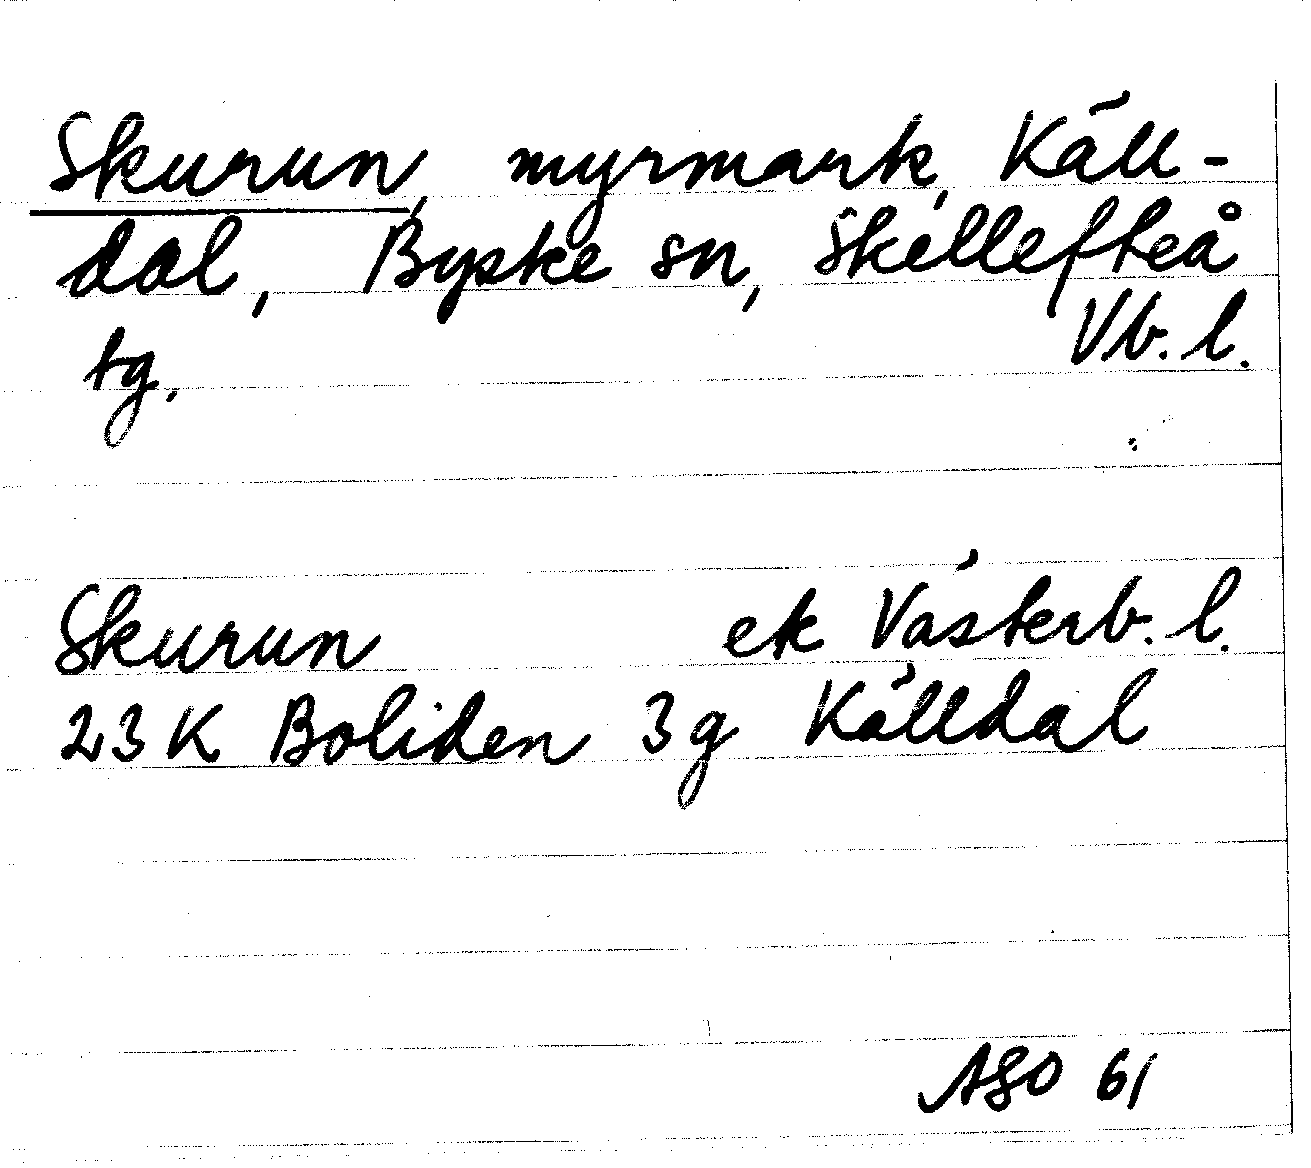 Skurun, myrmark, Käll-
dal, Byske sn, Skellefteå
tg. Vb. l.
Skurun ek Västerb. l.
23K Boliden 3g Källdal
ASO 61